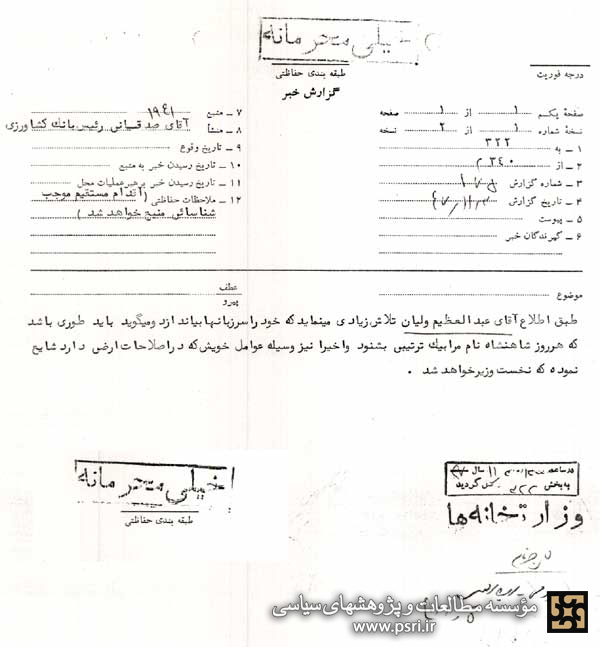 خیلی محرمانه
طبقه بندی حفاظتی
گزارش خبر
درجه فوریت
صفحهٔ یکم ۱ از ۱ صفحه
نسخهٔ شماره ۱ از ۲ نسخه
۱ ـ به ۳۲۲
۲ ـ از
۳ ـ شماره گزارش
۴ ـ تاریخ گزارش
۵ ـ پیوست
۶ ـ گیرندگان خبر
۷ ـ منبع ۱۹۴۱
۸ ـ منشأ آقای صدقیانی رئیس بانک کشاورزی
۹ ـ تاریخ وقوع
۱۰ ـ تاریخ رسیدن خبر به منبع
۱۱ ـ تاریخ رسیدن خبر برهبر عملیات محل
۱۲ ـ ملاحظات حفاظتی (اقدام مستقیم موجب
شناسائی منبع خواهد شد)
موضوع
عطف
پیرو
طبق اطلاع آقای عبدالعظیم ولیان تلاش زیادی مینماید که خود را سرزبانها بیاندازد ومیگوید باید طوری باشد
که هرروز شاهنشاه نام مرا بیک ترتیبی بشنود واخیرا نیز وسیله عوامل خویش که دراصلاحات ارضی دارد شایع
نموده که نخست وزیر خواهد شد .
خیلی محرمانه
طبقه بندی حفاظتی
وزارتخانه ها
مؤسسه مطالعات و پژوهشهای سیاسی
www.psri.ir